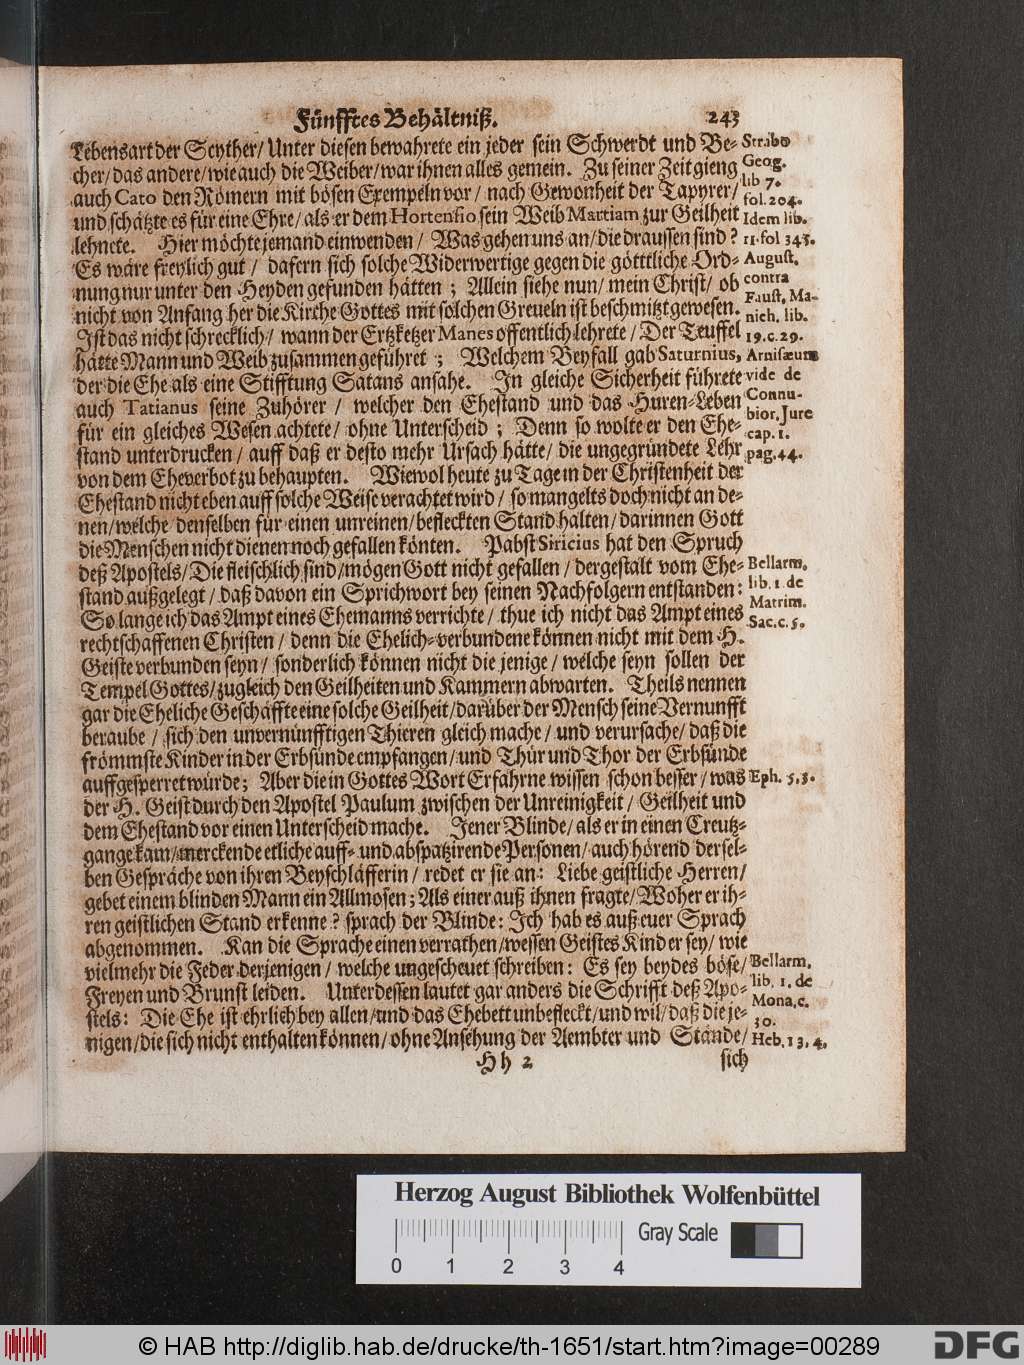 Fünfftes Behältniß. 243
Lebensart der Scyther/ Unter diesen bewahrete ein jeder sein Schwerdt und Be-
cher/ das andere/ wie auch die Weiber/ war ihnen alles gemein. Zu seiner Zeit gieng
auch Cato den Römern mit bösen Exempeln vor/ nach Gewonheit der Tapyrer/
und schätzte es für eine Ehre/ als er dem Hortensio sein Weib Martiam zur Geilheit
lehnete. Hier möchte jemand einwenden/ Was gehen uns an/ die draussen sind?
Es wäre freylich gut/ dafern sich solche Widerwertige gegen die götttliche Ord-
nung nur unter den Heyden gefunden hätten; Allein siehe nun/ mein Christ/ ob
nicht von Anfang her die Kirche Gottes mit solchen Greueln ist beschmitzt gewesen.
Ist das nicht schrecklich/ wann der Ertzketzer Manes offentlich lehrete/ Der Teuffel
hätte Mann und Weib zusammen geführet; Welchem Beyfall gab Saturnius,
der die Ehe als eine Stifftung Satans ansahe. In gleiche Sicherheit führete
auch Tatianus seine Zuhörer/ welcher den Ehestand und das Huren-Leben
für ein gleiches Wesen achtete/ ohne Unterscheid; Denn so wolte er den Ehe-
stand unterdrucken/ auff daß er desto mehr Ursach hätte/ die ungegründete Lehr
von dem Eheverbot zu behaupten. Wiewol heute zu Tage in der Christenheit der
Ehestand nicht eben auff solche Weise verachtet wird/ so mangelts doch nicht an de-
nen/ welche denselben für einen unreinen/ befleckten Stand halten/ darinnen Gott
die Menschen nicht dienen noch gefallen könten. Pabst Siricius hat den Spruch
deß Apostels/ Die fleischlich sind/ mögen Gott nicht gefallen/ dergestalt vom Ehe-
stand außgelegt/ daß davon ein Sprichwort bey seinen Nachfolgern entstanden:
So lange ich das Ampt eines Ehemanns verrichte/ thue ich nicht das Ampt eines
rechtschaffenen Christen/ denn die Ehelich-verbundene können nicht mit dem H.
Geiste verbunden seyn/ sonderlich können nicht die jenige/ welche seyn sollen der
Tempel Gottes/ zugleich den Geilheiten und Kammern abwarten. Theils nennen
gar die Eheliche Geschäffte eine solche Geilheit/ darüber der Mensch seine Vernunfft
beraube/ sich den unvernünfftigen Thieren gleich mache/ und verursache/ daß die
frömmste Kinder in der Erbsünde empfangen/ und Thür und Thor der Erbsünde
auffgesperret würde; Aber die in Gottes Wort Erfahrne wissen schon besser/ was
der H. Geist durch den Apostel Paulum zwischen der Unreinigkeit/ Geilheit und
dem Ehestand vor einen Unterscheid mache. Jener Blinde/ als er in einen Creutz-
gange kam/ merckende etliche auff- und abspatzirende Personen/ auch hörend dersel-
ben Gespräche von ihren Beyschläfferin/ redet er sie an: Liebe geistliche Herren/
gebet einem blinden Mann ein Allmosen; Als einer auß ihnen fragte/ Woher er ih-
ren geistlichen Stand erkenne? sprach der Blinde: Ich hab es auß euer Sprach
abgenommen. Kan die Sprache einen verrathen/ wessen Geistes Kind er sey/ wie
vielmehr die Feder derjenigen/ welche ungescheuet schreiben: Es sey beydes böse/
Freyen und Brunst leiden. Unterdessen lautet gar anders die Schrifft deß Apo-
stels: Die Ehe ist ehrlich bey allen/ und das Ehebett unbefleckt/ und wil/ daß die je-
nigen/ die sich nicht enthalten können/ ohne Ansehung der Aembter und Stände/
Hh 2 sich
Strabo
Geog.
lib 7.
fol. 204.
Idem lib.
11. fol 343.
August.
contra
Faust, Ma-
nich. lib.
19. c. 29.
Arnisæum
vide de
Connu-
bior. Jure
cap. 1.
pag. 44.
Bellarm.
lib. 1. de
Matrim.
Sac. c. 5.
Eph. 5, 3.
Bellarm.
lib. 1. de
Mona. c.
30.
Heb. 13, 4.
Herzog August Bibliothek Wolfenbüttel
Gray Scale
0 1 2 3 4
© HAB http://diglib.hab.de/drucke/th-1651/start.htm?image=00289
DFG